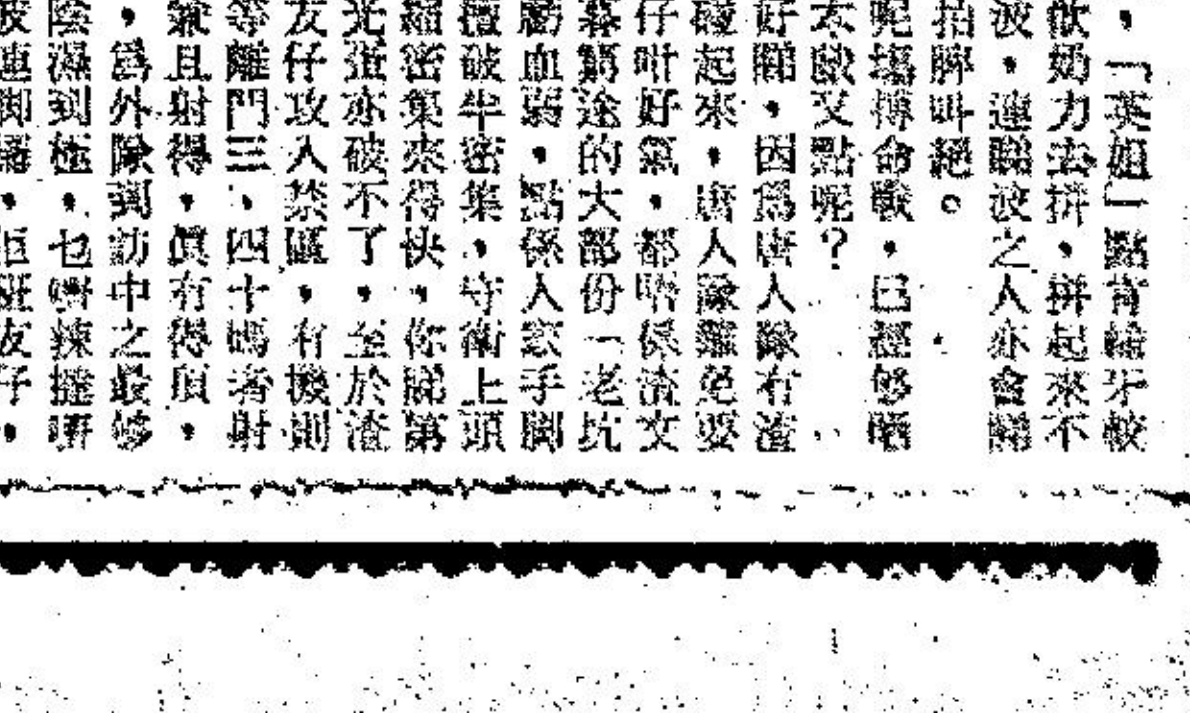 ，「英姐」點肯輸牙較
飲奶力去拼，拼起來不
波，連睇波之人亦會睇
拍髀叫絕。
呢塲搏命戰，已經够晒
太歎又點呢？
好睇，因爲唐人隊有渣
碰起來，唐人隊難免要
仔咁好氣，都唔係渣文
暮窮途的大部份一老坑
虧血弱，點係人家手脚
擅破半密集，守衛上頭
細密集來得快，你睇第
光蛋亦破不了，至於渣
友仔攻入禁區，有機則
等離門三、四十碼者射
兼且射得，眞有得頂，
，爲外除到訪中之最
陰濕到極，乜辣
連脚，班友仔，